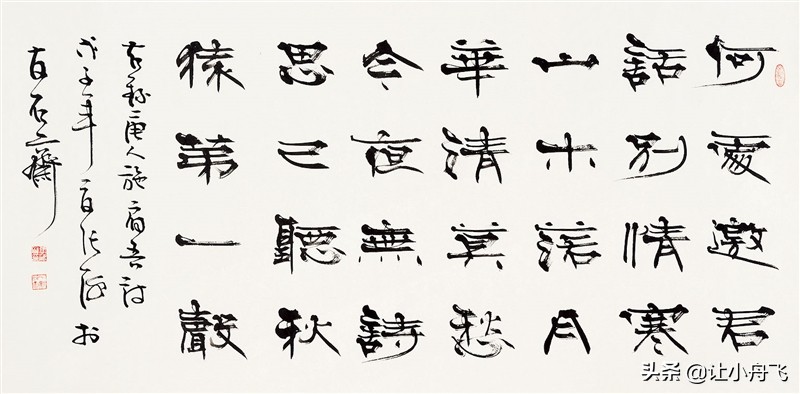 何處邀君
話別情寒
山木落月
華清莫愁
今夜無詩
思已聽秋
猿第一聲
右録唐人施肩吾詩
戊子年夏張海於
石齋
头条 @让小舟飞